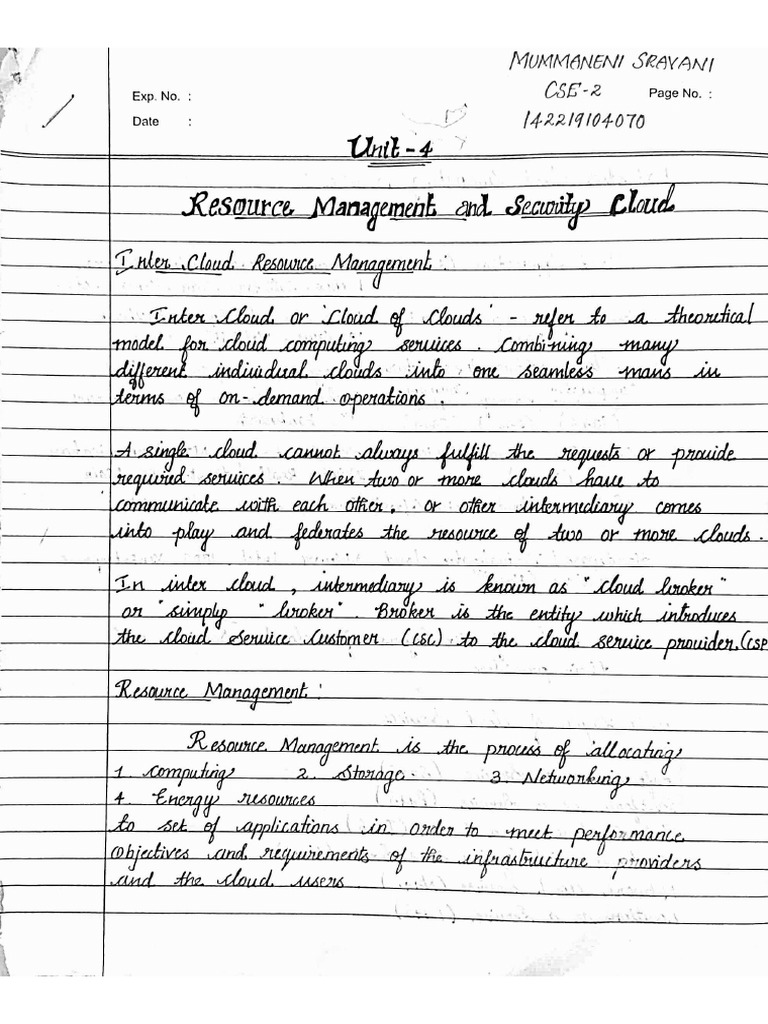 MUMMANENI SRAVANI
Exp. No. : CSE-2 Page No. :
Date : 142219104070
Unit - 4
Resource Management and Security Cloud
Inter Cloud Resource Management :
Inter Cloud or 'Cloud of Clouds' - refer to a theoretical
model for cloud computing services. Combining many
different individual clouds into one seamless mans in
terms of on-demand operations.
A single cloud cannot always fulfill the requests or provide
required services. When two or more clouds have to
communicate with each other, or other intermediary comes
into play and federates the resource of two or more clouds.
In inter cloud, intermediary is known as "cloud broker"
or "simply "broker". Broker is the entity which introduces
the cloud Service Customer (CSC) to the cloud service provider.(CSP
Resource Management :
Resource Management is the process of allocating
1. Computing 2. Storage 3. Networking
4. Energy resources
to set of applications in order to meet performance
objectives and requirements of the infrastructure providers
and the cloud users.